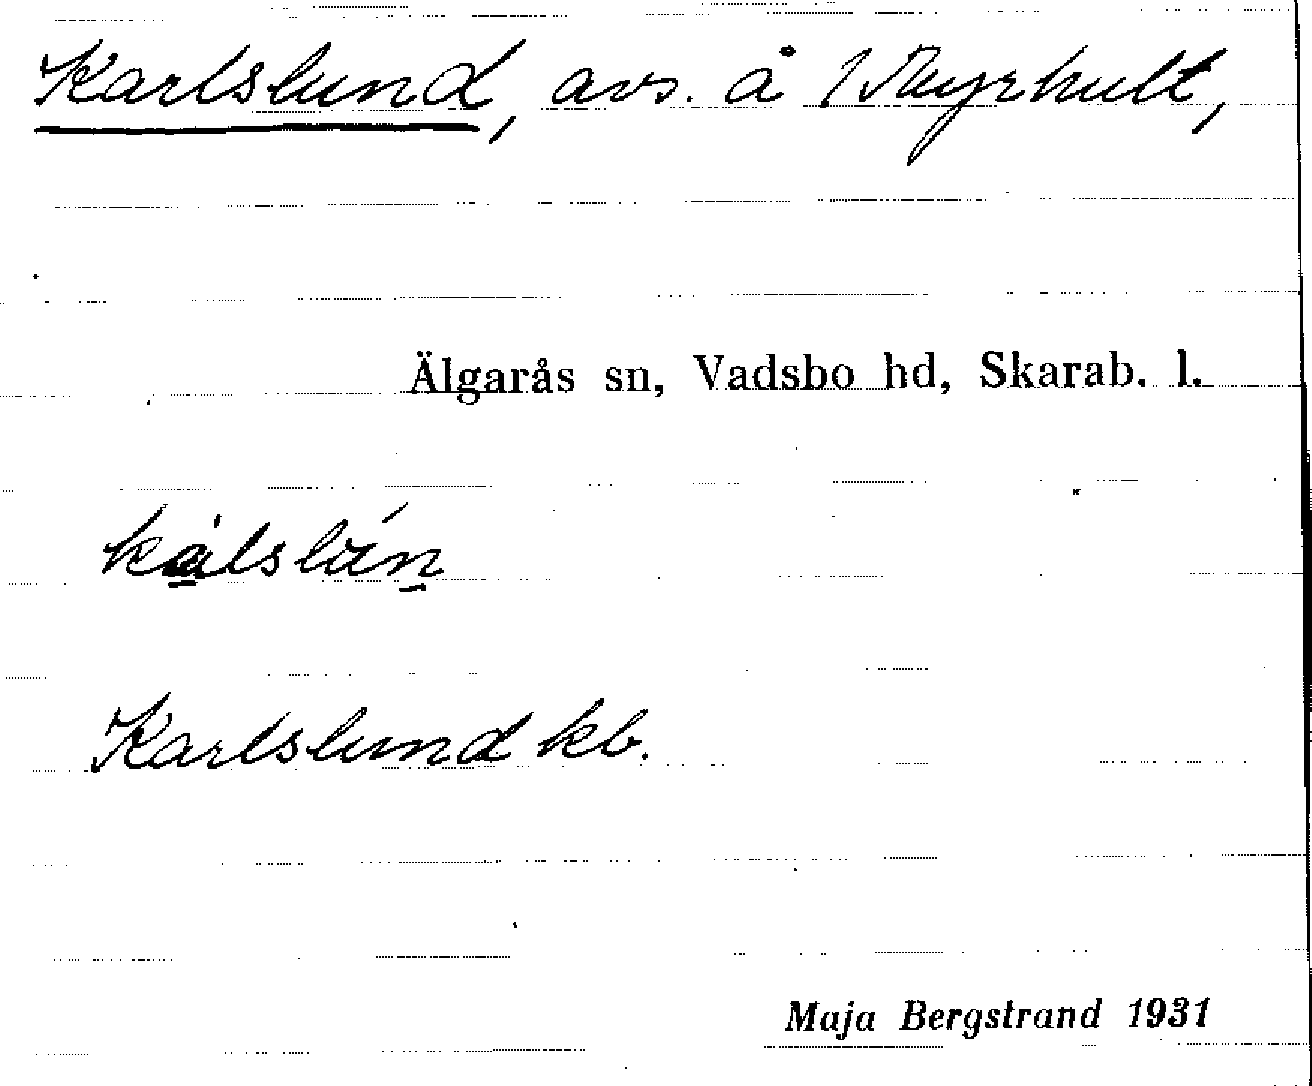 Karlslund, avs. å 1 Myrhult,
Älgarås sn, Vadsbo hd, Skarab. l.
Karlslund kb.
Maja Bergstrand 1931